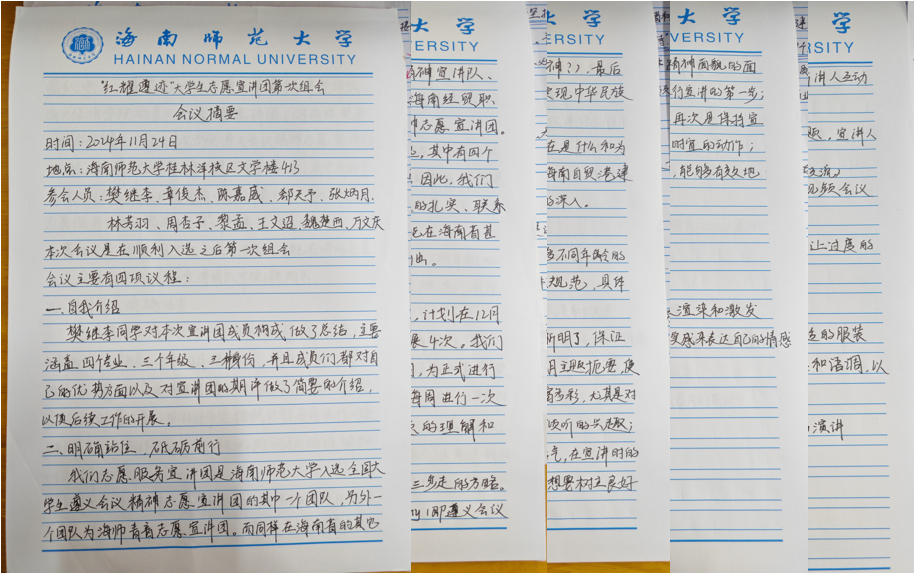 海南师范大学
HAINAN NORMAL UNIVERSITY
"红耀遵迹"大学生志愿宣讲团第一次组会
会议摘要
时间：2024年11月24日
地点：海南师范大学桂林洋校区文学楼413
参会人员：樊继李、章俊杰、陈嘉威、郝天予、张炳月、
林芳羽、周杏子、黎孟、王文迢、魏楚西、万文庆
本次会议是在顺利入选之后第一次组会
会议主要有四项议程：
一、自我介绍
樊继李同学对本次宣讲团成员构成做了总结，主要
涵盖四个专业、三个年级、三种身份，并且成员们都对自
己的优势方面以及对宣讲团的期许做了简要的介绍，
以便后续工作的开展。
二、明确站位，砥砺前行
我们志愿服务宣讲团是海南师范大学入选全国大
学生遵义会议精神志愿宣讲团的其中一个团队，另外一
个团队为海师青春志愿宣讲团。而同样在海南省的其它
大学
VERSITY
神宣讲队、
海南经贸职
志愿宣讲团。
，其中有四个
因此，我们
的扎实、联系
在海南省甚
，计划在12月
展4次。我们
，为正式进行
每周进行一次
的理解和
三步走的方略。
即遵义会议
大学
ERSITY
神？），最后
实现中华民族
在是什么和为
海南自贸港建
深入。
多不同年龄的
规范，具体
所明了，保证
主题扼要使
多彩，尤其是对
谈听的兴趣；
气，在宣讲时的
想要树立良好
大学
VERSITY
精神面貌的面
进行宣讲的第一步；
再次是保持宣
时宜的动作；
，能够有效地
渲染和激发
实感来表达自己的情感
学
RSITY
讲人互动
，宣讲人
视频会议
让过度的
的服装
和语调，以
演讲